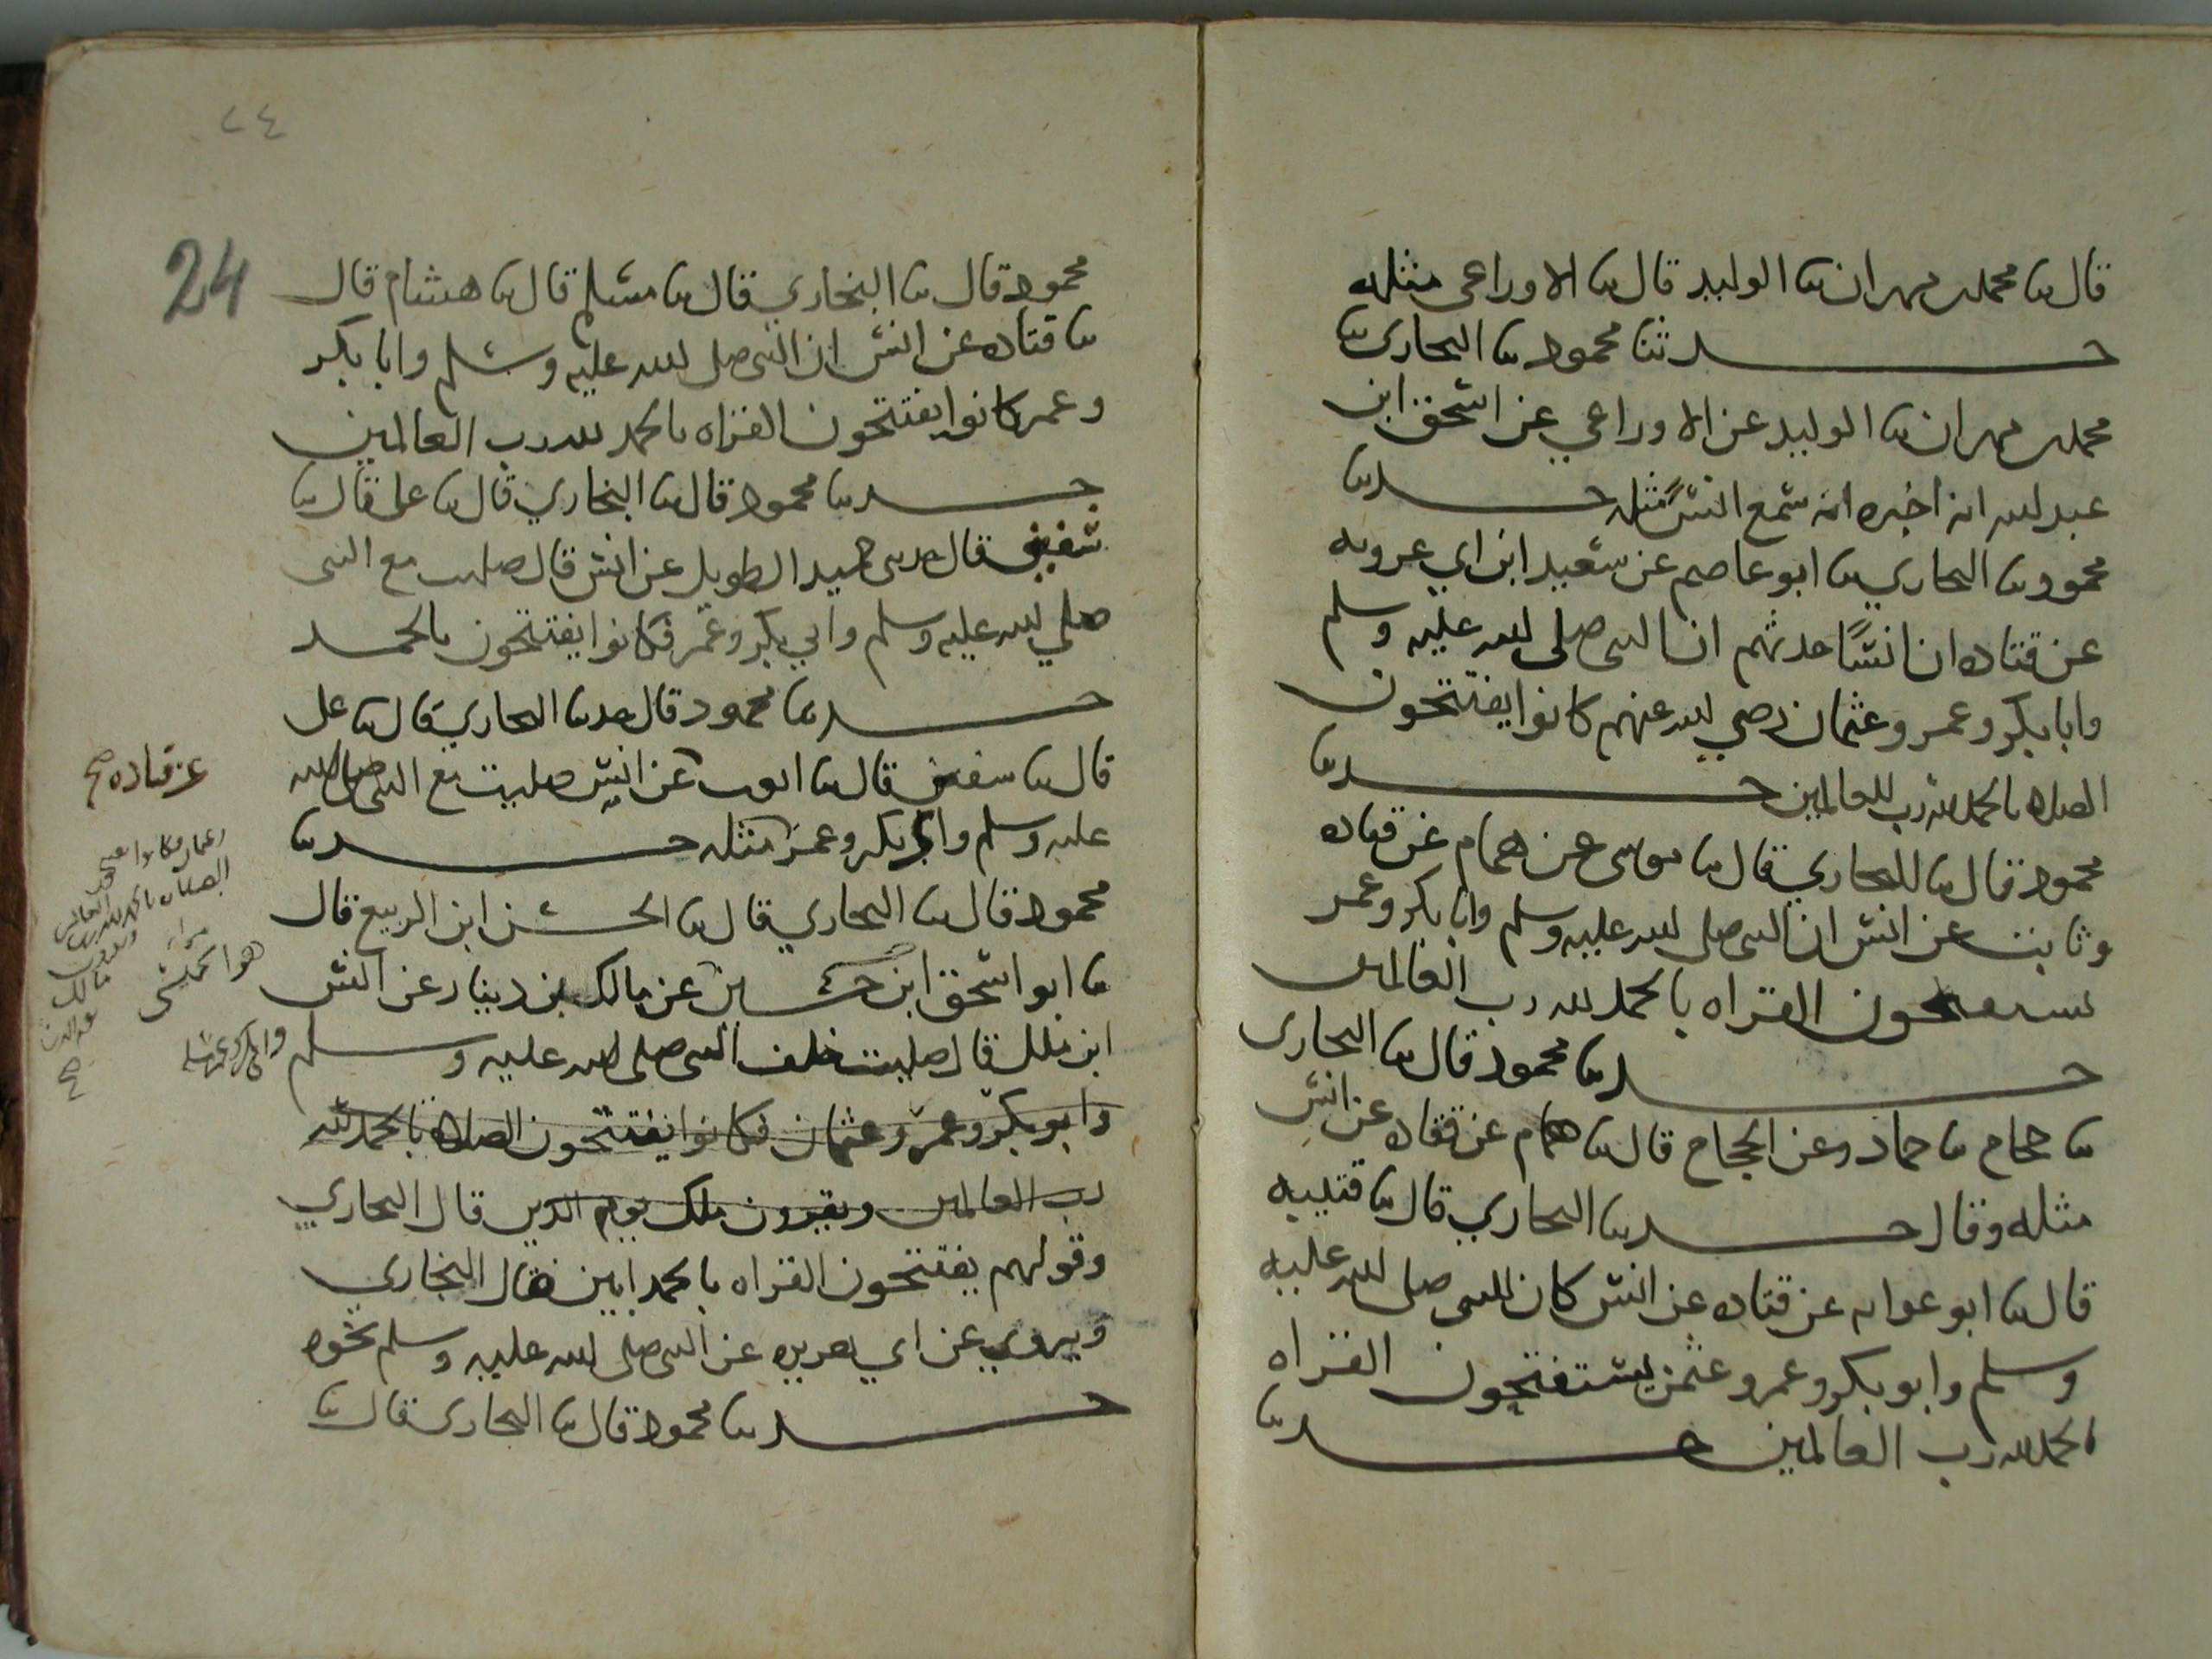 قال ثنا محمد بن مهران ثنا الوليد قال ثنا الاوراعى مثله
حدثنا محمود ثنا البحارى ثنا
محمد بن مهران ثنا الوليد عن الاوراعي عن اسحق ابن
عبد الله انه اخبره انه سمع انسًا مثله حدثنا
محمود ثنا البحاري ثنا ابو عاصم عن سعيد ابن ابي عروبه
عن قتاده ان انسًا حدثهم ان النبى صلى الله عليه وسلم
وابا بكر وعمر وعثمان رضي الله عنهم كانوا يفتتحون
الصلاه بالحمد لله رب العالمين حدثنا
محمود قال ثنا البحاري قال ثنا موسى عن همام عن قتاده
وثابت عن انس ان النبى صلى الله عليه وسلم وابا بكر وعمر
يستفتحون القراه بالحمد لله رب العالمين
حدثنا محمود قال ثنا البحارى
ثنا حجاج ثنا حماد وعن الحجاج قال ثنا همام عن قتاده عن انس
مثله وقال حدثنا البحاري قال ثنا قتيبه
قال ثنا ابو عوانه عن قتاده عن انس كان النبى صلى الله عليه
وسلم وابو بكر وعمر وعثمن يستفتحون القراه
بالحمد لله رب العالمين حدثنا
٢٤
24
محمود قال ثنا البخاري قال ثنا مسلم قال ثنا هشام قال
ثنا قتاده عن انس ان النبى صلى الله عليه وسلم وابا بكر
وعمر كانوا يفتتحون القراه بالحمد لله رب العالمين
حدثنا محمود قال ثنا البخاري قال ثنا على قال ثنا
سفين قال حدثنى حميد الطويل عن انس قال صليت مع النبى
صلي الله عليه وسلم وابي بكر وعمر فكانوا يفتتحون بالحمد
حدثنا محمود قال حدثنا البحاري قال ثنا على
قال ثنا سفين قال ثنا ايوب عن انس صليت مع النبى صلى الله
عليه وسلم وابى بكر وعمر مثله حدثنا
محمود قال ثنا البحاري قال ثنا الحسن ابن الربيع قال
ثنا ابو اسحق ابن حسين عن مالك بن دينار عن انس
ابن ملك قال صليت خلف النبى صلى الله عليه وسلم
وابو بكر وعمر وعثمان فكانوا يفتتحون الصلاه بالحمد لله
رب العالمين ويقرون ملك يوم الدين قال البحاري
وقولهم يفتتحون القراه بالحمد ابين قال البخاري
ويروي عن ابي هريره عن النبى صلى الله عليه وسلم نحوه
حدثنا محمود قال ثنا البحارى قال ثنا
عن قتاده صح
هو الحميسى